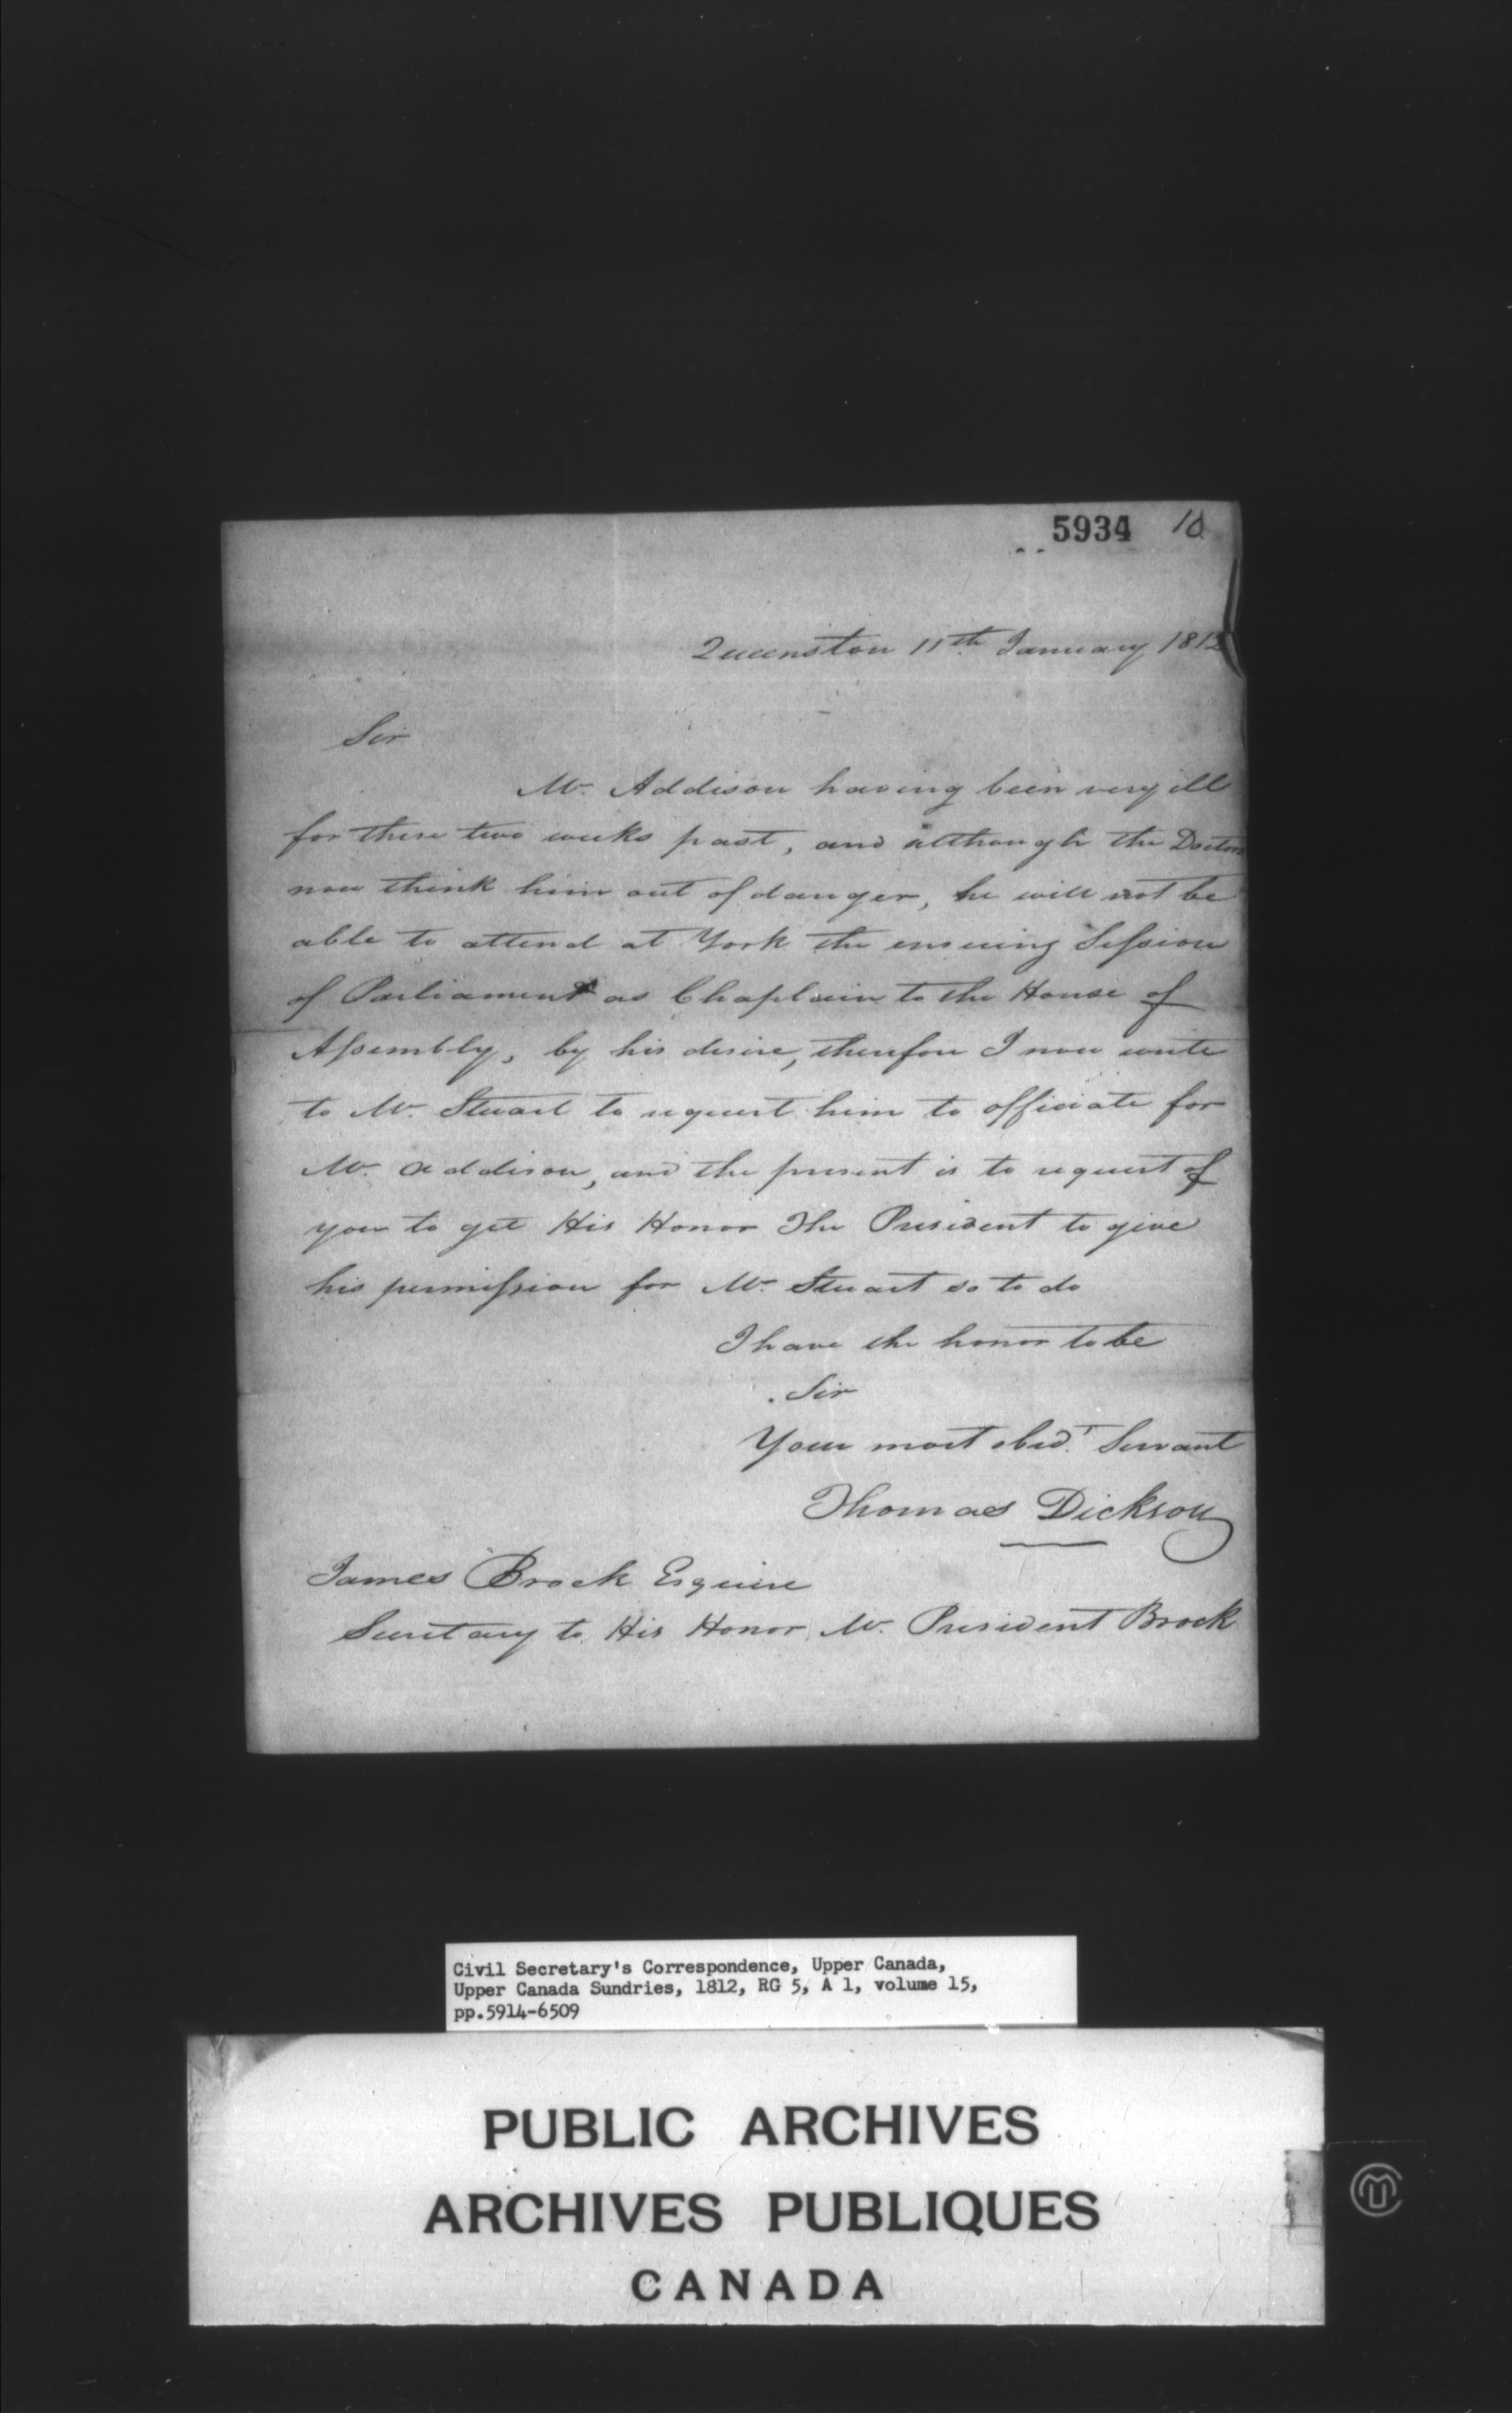 5934 10
Queenston 11th January 1812
Sir
Mr. Addison having been very ill
for these two weeks past, and although the Doctors
now think him out of danger, he will not be
able to attend at York the ensuing Session
of Parliament as Chaplain to the House of
Assembly, by his desire, therefore I now write
to Mr. Stuart to request him to officiate for
Mr. Addison, and the present is to request of
you to get His Honor The President to give
his permission for Mr. Stuart so to do
I have the honor to be
Sir
Your most obedt. Servant
Thomas Dickson
James Brock Esquire
Secretary to His Honor Mr. President Brock
Civil Secretary's Correspondence, Upper Canada,
Upper Canada Sundries, 1812, RG 5, A 1, volume 15,
pp.5914-6509
PUBLIC ARCHIVES
ARCHIVES PUBLIQUES
CANADA